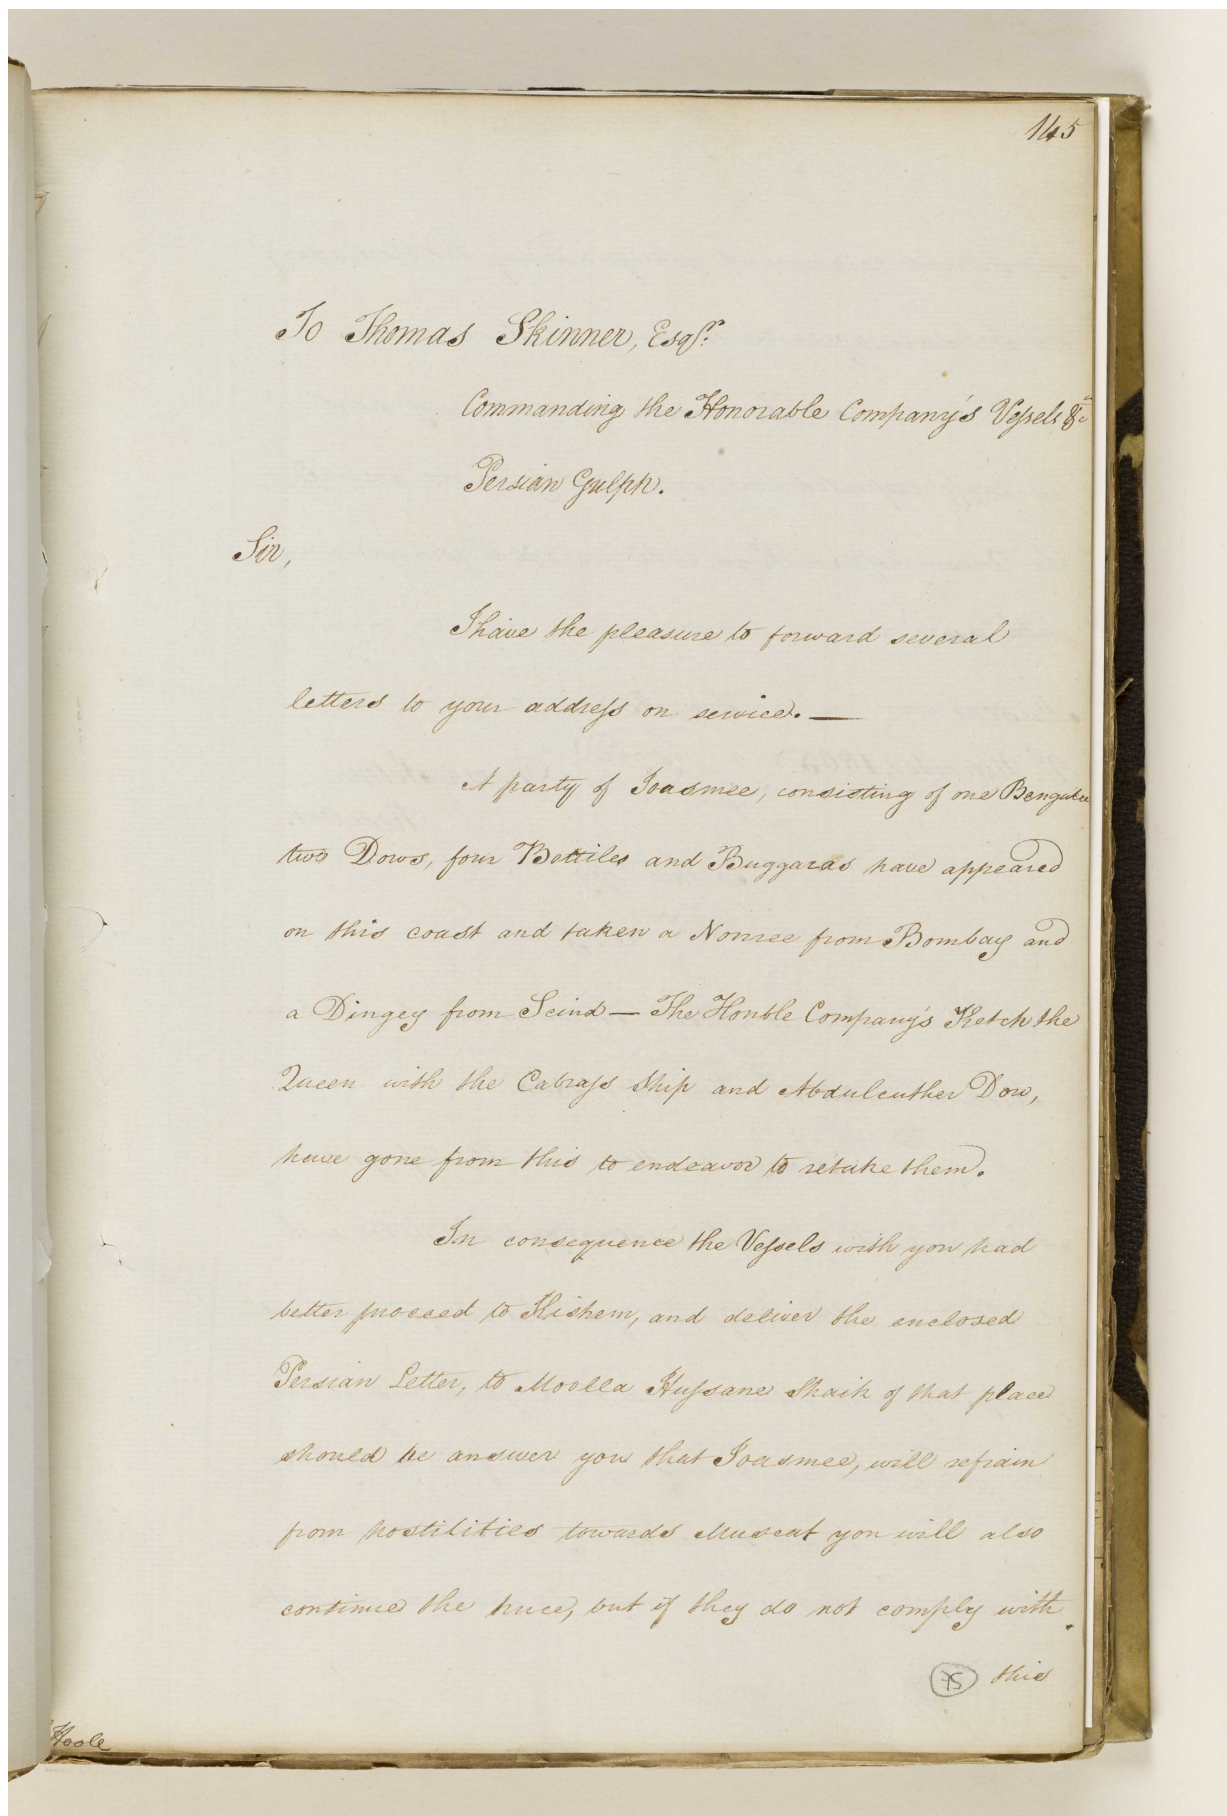 145
To Thomas Skinner, Esqr.
Commanding the Honorable Company's Vessels &c
Persian Gulph.
Sir,
I have the pleasure to forward several
letters to your address on service. —
A party of Joasmee, consisting of one
two Dows, four Battiles and Buggaras have appeared
on this coast and taken a Nouree from Bombay and
a Dingey from Scind — The Honble Company's Ketch the
Queen with the Cabrass Ship and Abdulcuther Dow,
have gone from this to endeavor to retake them.
In consequence the Vessels with you had
better proceed to Kishem, and deliver the enclosed
Persian Letter, to Moolla Hussane Shaik of that place
should he answer you that Joasmee, will refrain
from hostilities towards Muscat you will also
continue the truce, but if they do not comply with
75 this
Hoole